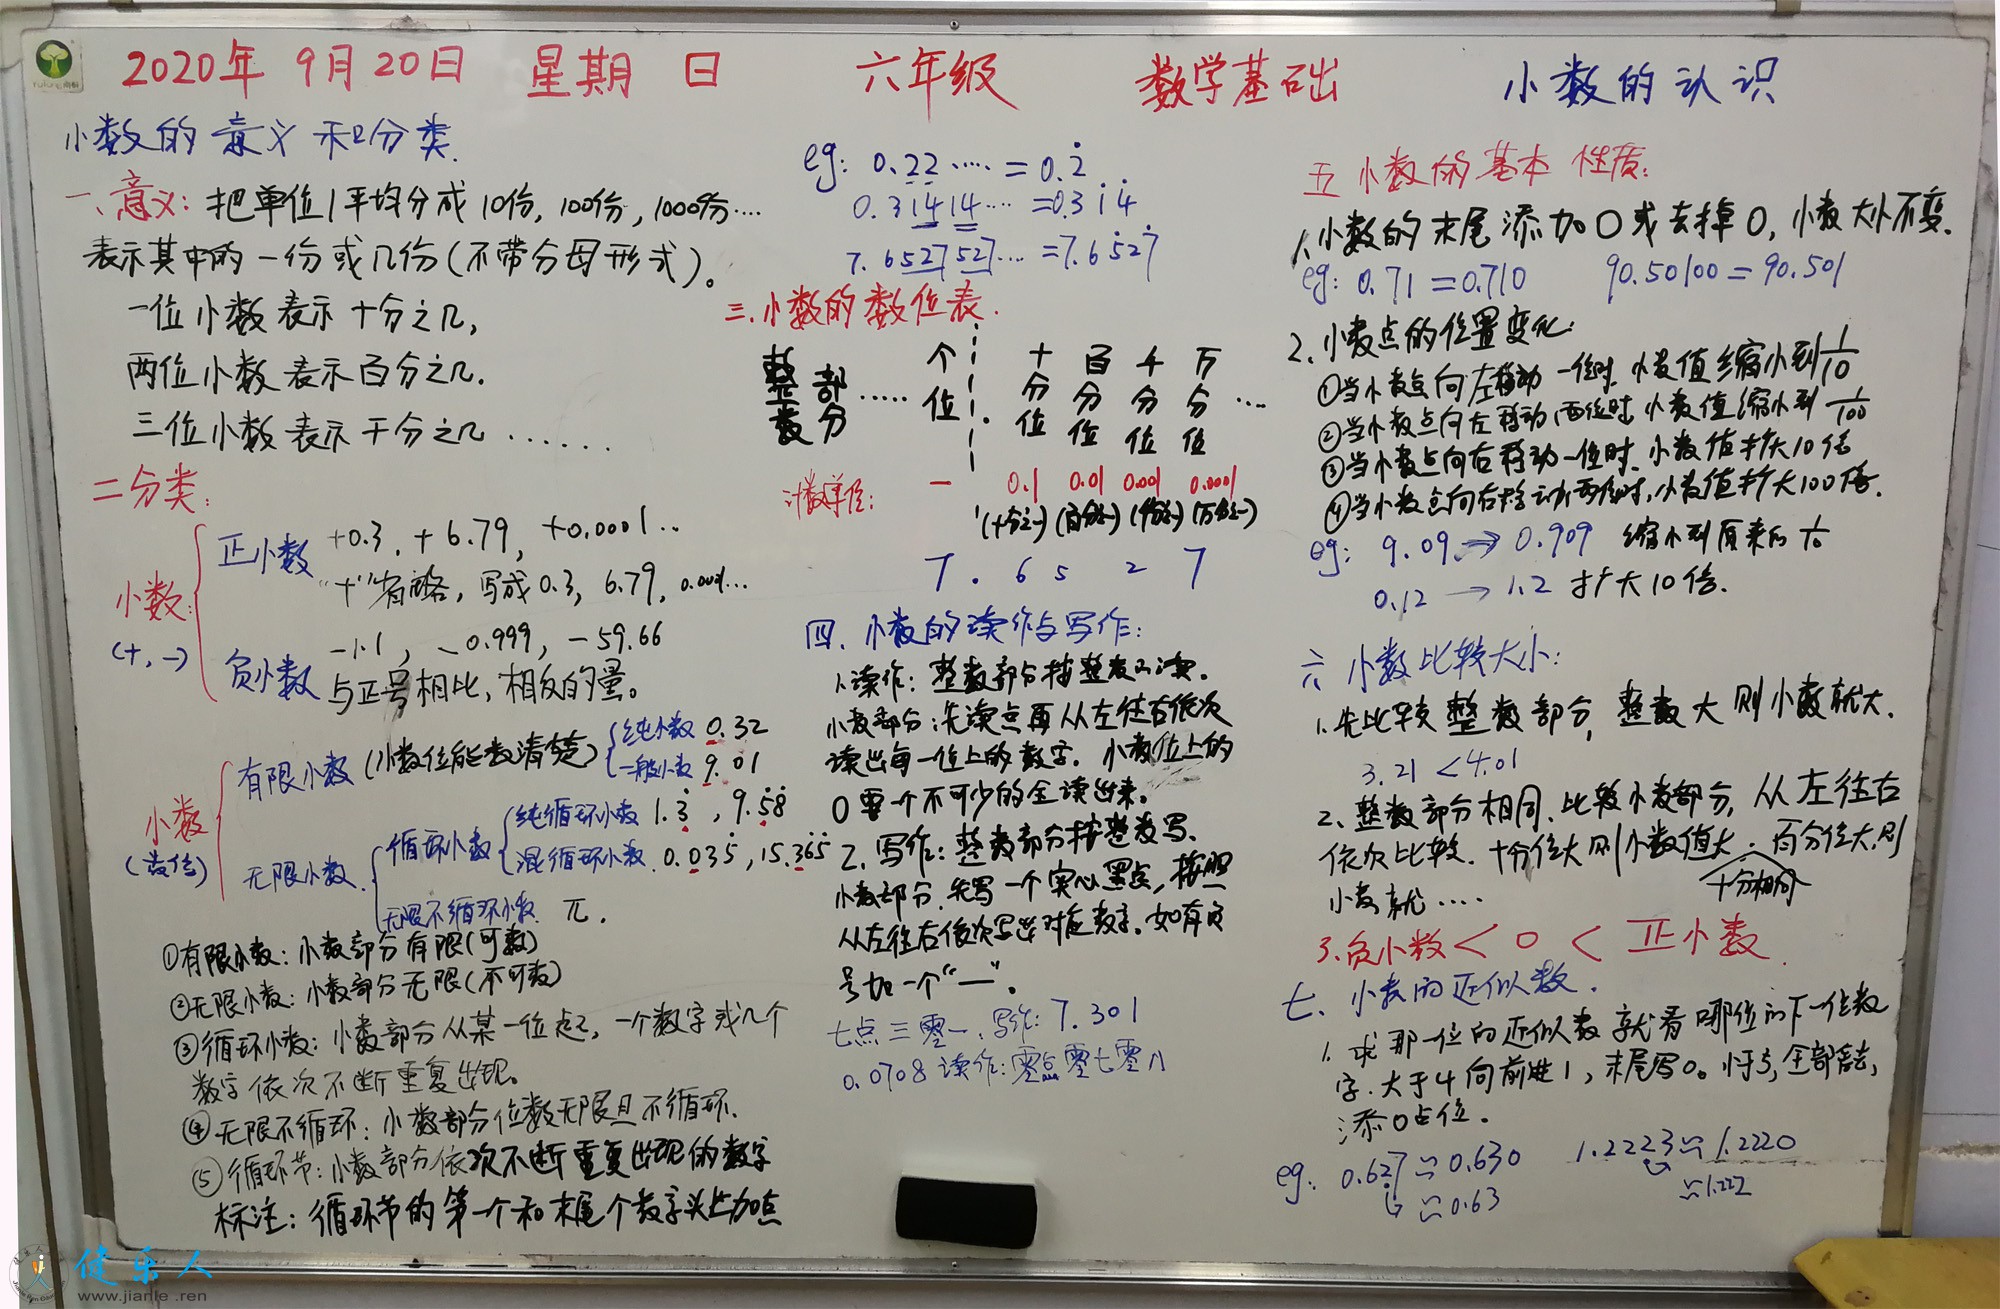 2020年 9月20日 星期 日 六年级 数学基础 小数的认识
小数的意义和分类.
一、意义: 把单位1平均分成10份, 100份, 1000份····
表示其中的一份或几份(不带分母形式)。
一位小数表示十分之几,
两位小数表示百分之几.
三位小数表示千分之几 ······
二分类:
小数:
(+, -)
正小数 +0.3, +6.79, +0.0001··
"+"省略, 写成0.3, 6.79, 0.0001...
负小数 -1.1, -0.999, -59.66
与正号相比, 相反的量。
小数
(数位)
有限小数 (小数位能数清楚) 纯小数 0.32
一般小数 9.01
无限小数 循环小数 纯循环小数 1.3̇, 9.5̇8̇
混循环小数 0.035̇, 15.3̇6̇5̇
无限不循环小数 π.
①有限小数: 小数部分有限(可数)
②无限小数: 小数部分无限(不可数)
③循环小数: 小数部分从某一位起, 一个数字或几个
数字依次不断重复出现。
④无限不循环: 小数部分位数无限且不循环.
⑤循环节: 小数部分依次不断重复出现的数字
标注: 循环节的第一个和末尾个数字头上加点
eg: 0.22····· = 0.2̇
0.31414··· = 0.31̇4̇
7.6527527··· = 7.65̇27̇
三.小数的数位表.
整数部分 ····· 个位 . 十分位 百分位 千分位 万分位 ···
计数单位: 一 0.1 0.01 0.001 0.0001
(十分之一) (百分之一) (千分之一) (万分之一)
7 . 6 5 2 7
四. 小数的读作与写作:
1.读作: 整数部分按整数的读.
小数部分: 先读点再从左往右依次
读出每一位上的数字. 小数位上的
0要一个不可少的全读出来。
2. 写作: 整数部分按整数写.
小数部分.先写一个实心黑点, 按照
从左往右依次写出对应数字。如有负
号加一个"—"。
七点三零一, 写作: 7.301
0.0708 读作: 零点零七零八
五 小数的基本性质:
1.小数的末尾添加0或去掉0, 小数大小不变.
eg: 0.71 = 0.710 90.50100 = 90.501
2. 小数点的位置变化:
①当小数点向左移动一位时. 小数值缩小到1/10
②当小数点向左移动两位时, 小数值缩小到1/100
③当小数点向右移动一位时. 小数值扩大10倍
④当小数点向右移动两位时, 小数值扩大100倍.
eg: 9.09 → 0.909 缩小到原来的1/10
0.12 → 1.2 扩大10倍.
六 小数比较大小:
1.先比较整数部分, 整数大则小数就大.
3.21 < 4.01
2、整数部分相同. 比较小数部分, 从左往右
依次比较. 十分位大则小数值大. 百分位大则
十分相同
小数就····
3.负小数 < 0 < 正小数.
七. 小数的近似数.
1. 求那一位的近似数就看哪位的下一位数
字. 大于4向前进1, 末尾写0。小于5, 全部舍去,
添0占位.
eg: 0.627 ≈ 0.630 1.2223 ≈ 1.2220
≈ 0.63 ≈ 1.222
健乐人
www.jianle.ren